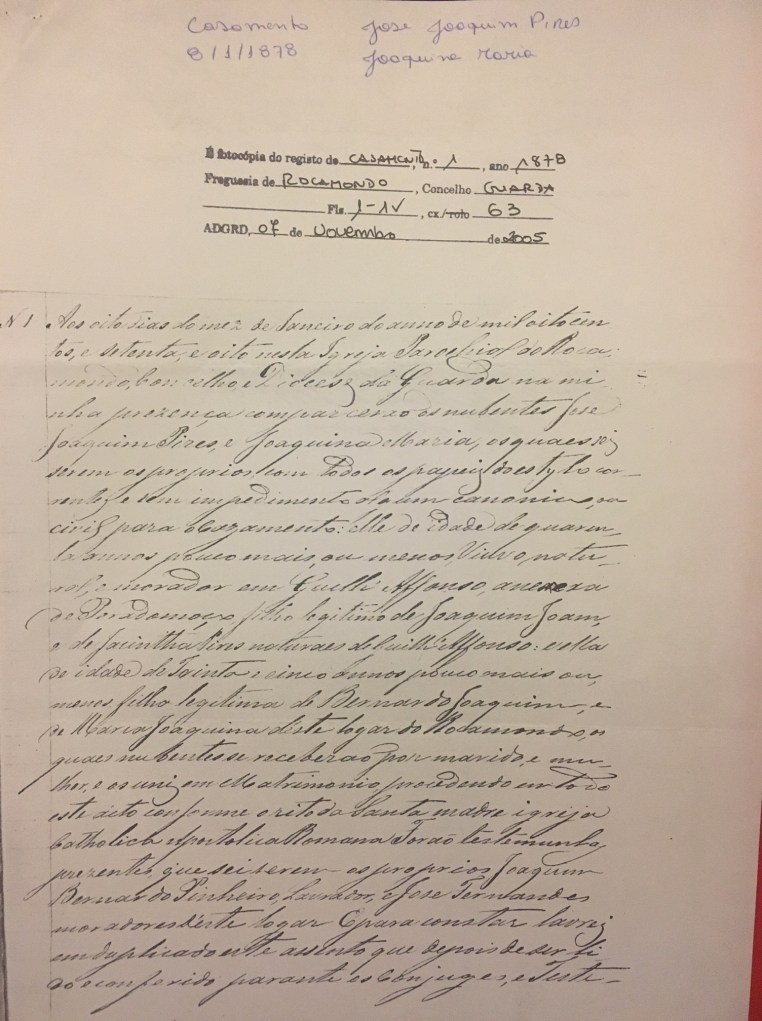 Casamento Jose Joaquim Pires
8/1/1878 Joaquina Maria
É fotocópia do registo de CASAMENTO, n.º 1, ano 1878
Freguesia de ROCAMONDO, Concelho GUARDA
Fls 1-1V, cx./rolo 63
ADGRD, 07 de Novembro de 2005
N 1 Aos oito dias do mez de Janeiro do anno de mil oitocen
tos, e setenta, e oito nesta Igreja Parochial do Roca:
mondo, Concelho, e Diocese da Guarda na mi
nha prezença comparecerão os nubentes Jose
Joaquim Pires, e Joaquina Maria, os quaes sei
serem os proprios, com todos os papeis do estylo cor
rentes, e sem impedimento algum canonico, ou
civil para o cazamento: elle de idade de quaren_
ta annos pouco mais, ou menos, Viuvo, natu_
ral, e morador em Guilh Affonso, annexa
de filho legitimo de Joaquim Joam,
e de Jacintha Pires naturaes de Guilh Affonso: e ella
de idade de Trinta e cinco annos pouco mais ou,
menos filha legitima de Bernardo Joaquim, e
de Maria Joaquina d'este logar do Rocamondo, os
quaes nubentes se receberão por marido, e mu_
lher, e os uni em Matrimonio, procedendo em todo
este acto conforme o rito da Santa madre igreja
Catholica Apostolica Romana Forão testemunhas
prezentes, que sei serem os proprios, Joaquim
Bernardo Pinheiro, Lavrador, e Jose Fernandes
moradores d'este logar E para constar lavrei
em duplicado este assento que depois de ser li
do e conferido parante os Conjuges, e Teste_